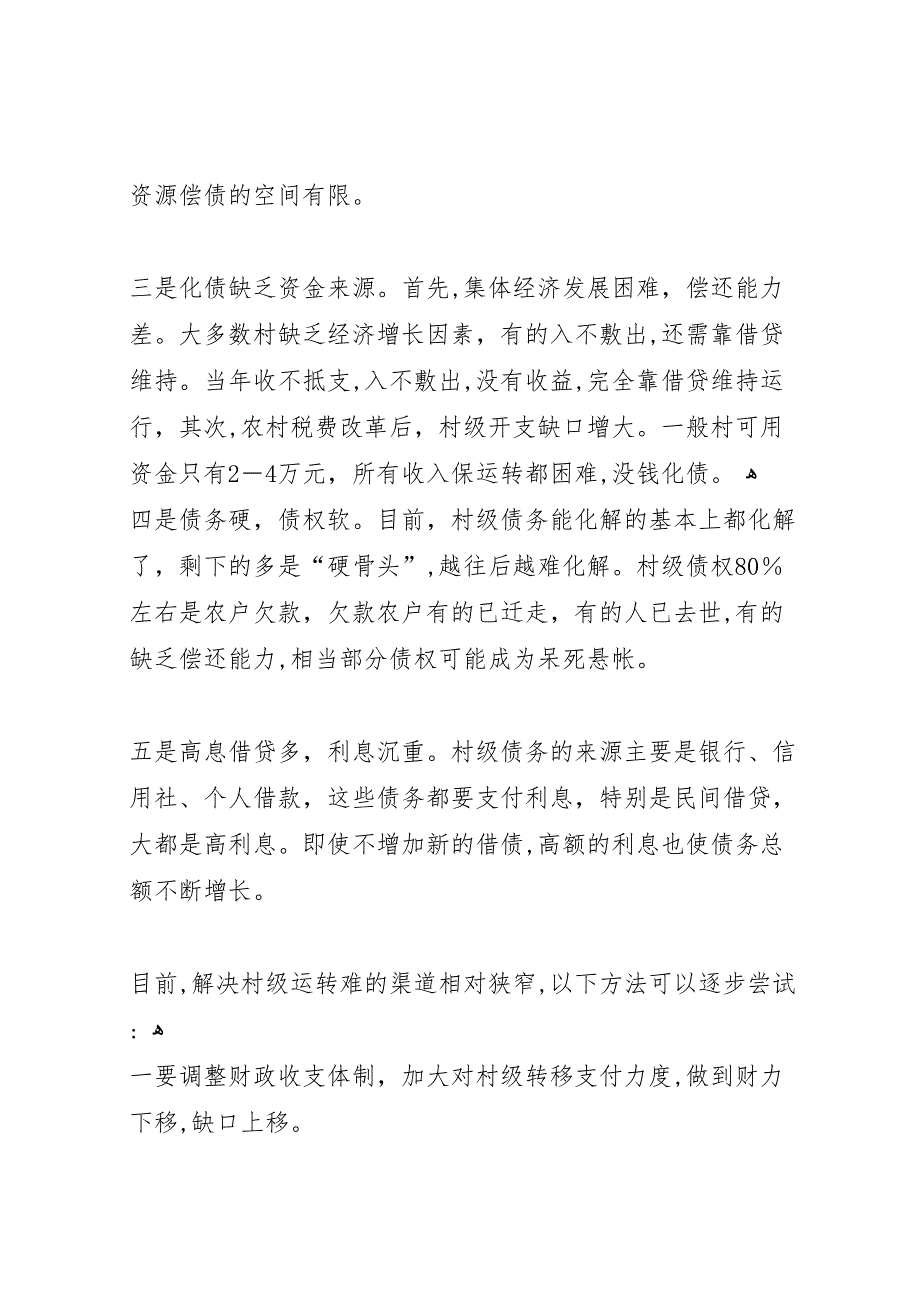 资源偿债的空间有限。
三是化债缺乏资金来源。首先,集体经济发展困难，偿还能力
差。大多数村缺乏经济增长因素，有的入不敷出,还需靠借贷
维持。当年收不抵支,入不敷出,没有收益,完全靠借贷维持运
行，其次,农村税费改革后，村级开支缺口增大。一般村可用
资金只有2－4万元，所有收入保运转都困难,没钱化债。 ﻫ
四是债务硬，债权软。目前，村级债务能化解的基本上都化解
了，剩下的多是“硬骨头”,越往后越难化解。村级债权80％
左右是农户欠款，欠款农户有的已迁走，有的人已去世,有的
缺乏偿还能力,相当部分债权可能成为呆死悬帐。
五是高息借贷多，利息沉重。村级债务的来源主要是银行、信
用社、个人借款，这些债务都要支付利息，特别是民间借贷，
大都是高利息。即使不增加新的借债,高额的利息也使债务总
额不断增长。
目前,解决村级运转难的渠道相对狭窄,以下方法可以逐步尝试
: ﻫ
一要调整财政收支体制，加大对村级转移支付力度,做到财力
下移,缺口上移。